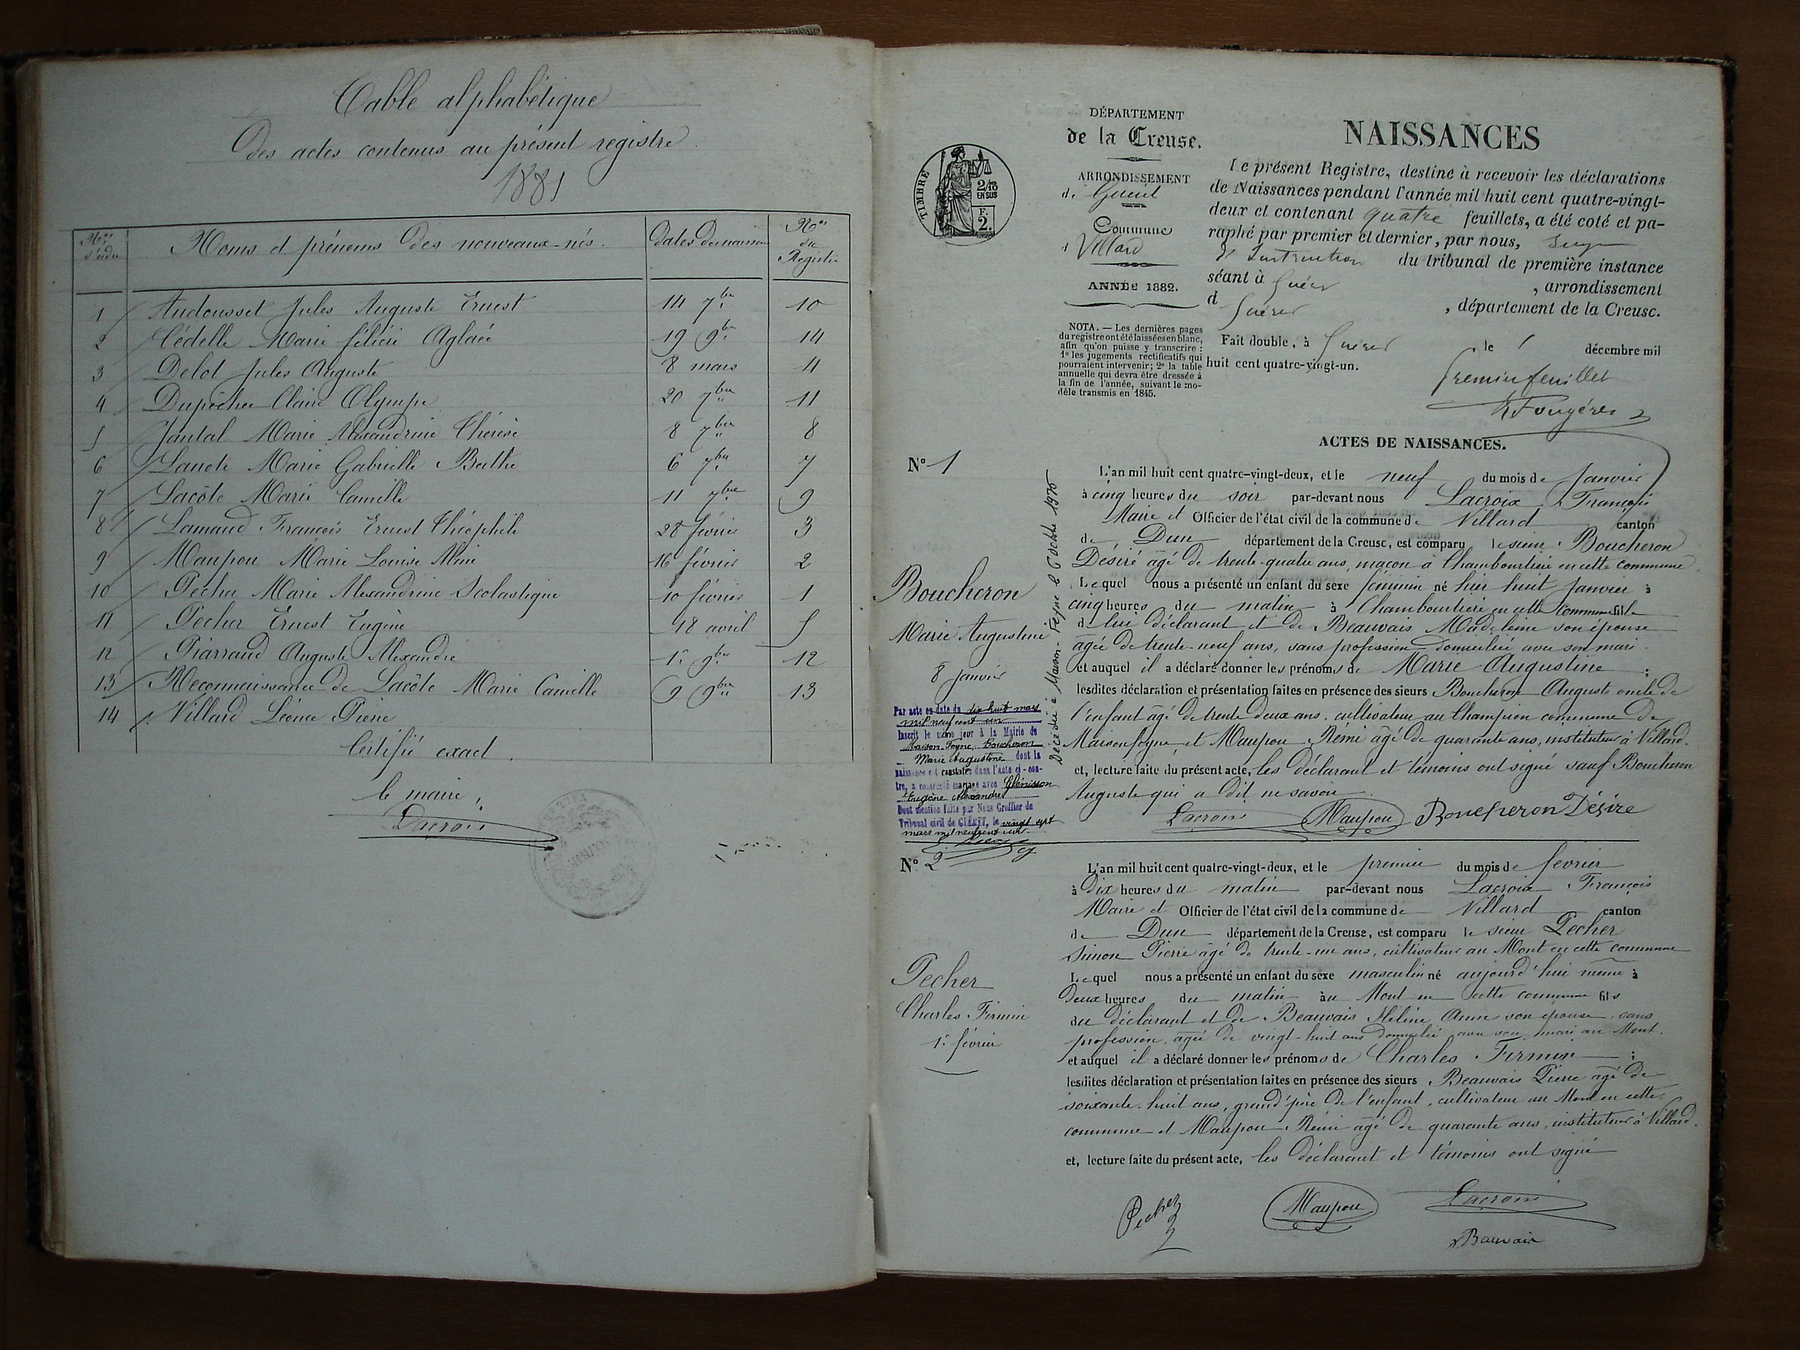 Table alphabétique
Des actes contenus au présent registre
1881
Nos d'ordre
Noms et prénoms des nouveaux-nés.
dates de naissance
Nos du Registre
1 Audousset Jules Auguste Ernest 14 7bre 10
2 Cédelle Marie félicie Aglaé 19 9bre 14
3 Delot Jules Auguste 8 mars 4
4 Claire Olympe 20 7bre 11
5 Jantal Marie Alexandrine Thérèse 8 7bre 8
6 Marie Gabrielle Berthe 6 7bre 7
7 Lacôte Marie Camille 11 7bre 9
8 Lamaud François Ernest Théophile 28 février 3
9 Maupou Marie Louise 16 février 2
10 Pecher Marie Alexandrine Scolastique 10 février 1
11 Pecher Ernest Eugène 18 avril 5
12 Piarraud Auguste Alexandre 1er 9bre 12
13 Reconnaissance de Lacôte Marie Camille 9 9bre 13
14 Villard Léonce Pierre
Certifié exact
le maire,
Lacroix
TIMBRE
2/10
EN SUS
F.
2.
DÉPARTEMENT
de la Creuse.
ARRONDISSEMENT
de Guéret
Commune
d Villard
ANNÉE 1882.
NOTA. — Les dernières pages
du registre ont été laissées en blanc,
afin qu'on puisse y transcrire :
1º les jugements rectificatifs qui
pourraient intervenir; 2º la table
annuelle qui devra être dressée à
la fin de l'année, suivant le mo-
dèle transmis en 1845.
NAISSANCES
Le présent Registre, destiné à recevoir les déclarations
de Naissances pendant l'année mil huit cent quatre-vingt-
deux et contenant quatre feuillets, a été coté et pa-
raphé par premier et dernier, par nous, Juge
d'Instruction du tribunal de première instance
séant à Guéret , arrondissement
d Guéret , département de la Creuse.
Fait double, à Guéret le décembre mil
huit cent quatre-vingt-un.
Premier feuillet
Fougères
ACTES DE NAISSANCES.
Nº 1
Boucheron
Marie Augustine
8 janvier
Par acte en date du dix huit mars
mil neuf cent un
inscrit le même jour à la Mairie de
Maison-Feyne, Boucheron
Marie Augustine dont la
naissance est constatée dans l'acte ci-con-
tre, a contracté mariage avec Glénisson
Eugène Alexandre
Dont mention faite par Nous Greffier du
Tribunal civil de GUÉRET, le vingt sept
mars mil neuf cent un.
Décédée à Maison-Feyne le 6 octobre 1975
L'an mil huit cent quatre-vingt-deux, et le neuf du mois de janvier
à cinq heures du soir par-devant nous Lacroix François
Maire et Officier de l'état civil de la commune de Villard canton
de Dun département de la Creuse, est comparu le sieur Boucheron
Désiré âgé de trente-quatre ans, maçon à Chambourtière en cette commune.
Lequel nous a présenté un enfant du sexe féminin né hier huit janvier à
cinq heures du matin à Chambourtière en cette commune fille
de lui déclarant et de Beauvais Madeleine son épouse
âgée de trente-neuf ans, sans profession domiciliée avec son mari.
et auquel il a déclaré donner les prénoms de Marie Augustine ;
lesdites déclaration et présentation faites en présence des sieurs Boucheron Auguste oncle de
l'enfant âgé de trente deux ans, cultivateur au Champion commune de
Maisonfeyne et Maupou Rémi âgé de quarante ans, instituteur à Villard.
et, lecture faite du présent acte, les déclarant et témoins ont signé sauf Boucheron
Auguste qui a dit ne savoir.
Lacroix Maupou Boucheron Désiré
Nº 2
Pecher
Charles Firmin
1er février
L'an mil huit cent quatre-vingt-deux, et le premier du mois de février
à dix heures du matin par-devant nous Lacroix François
Maire et Officier de l'état civil de la commune de Villard canton
de Dun département de la Creuse, est comparu le sieur Pecher
Simon Pierre âgé de trente-un ans, cultivateur au Mont en cette commune
Lequel nous a présenté un enfant du sexe masculin né aujourd'hui même à
deux heures du matin au Mont en cette commune fils
du déclarant et de Beauvais Hélène Anne son épouse, sans
profession, âgée de vingt-huit ans domiciliée avec son mari au Mont.
et auquel il a déclaré donner les prénoms de Charles Firmin ;
lesdites déclaration et présentation faites en présence des sieurs Beauvais Pierre âgé de
soixante-huit ans, grand'père de l'enfant, cultivateur au Mont en cette
commune et Maupou Rémi âgé de quarante ans, instituteur à Villard.
et, lecture faite du présent acte, les déclarant et témoins ont signé
Pecher Maupou Lacroix
Bauvais